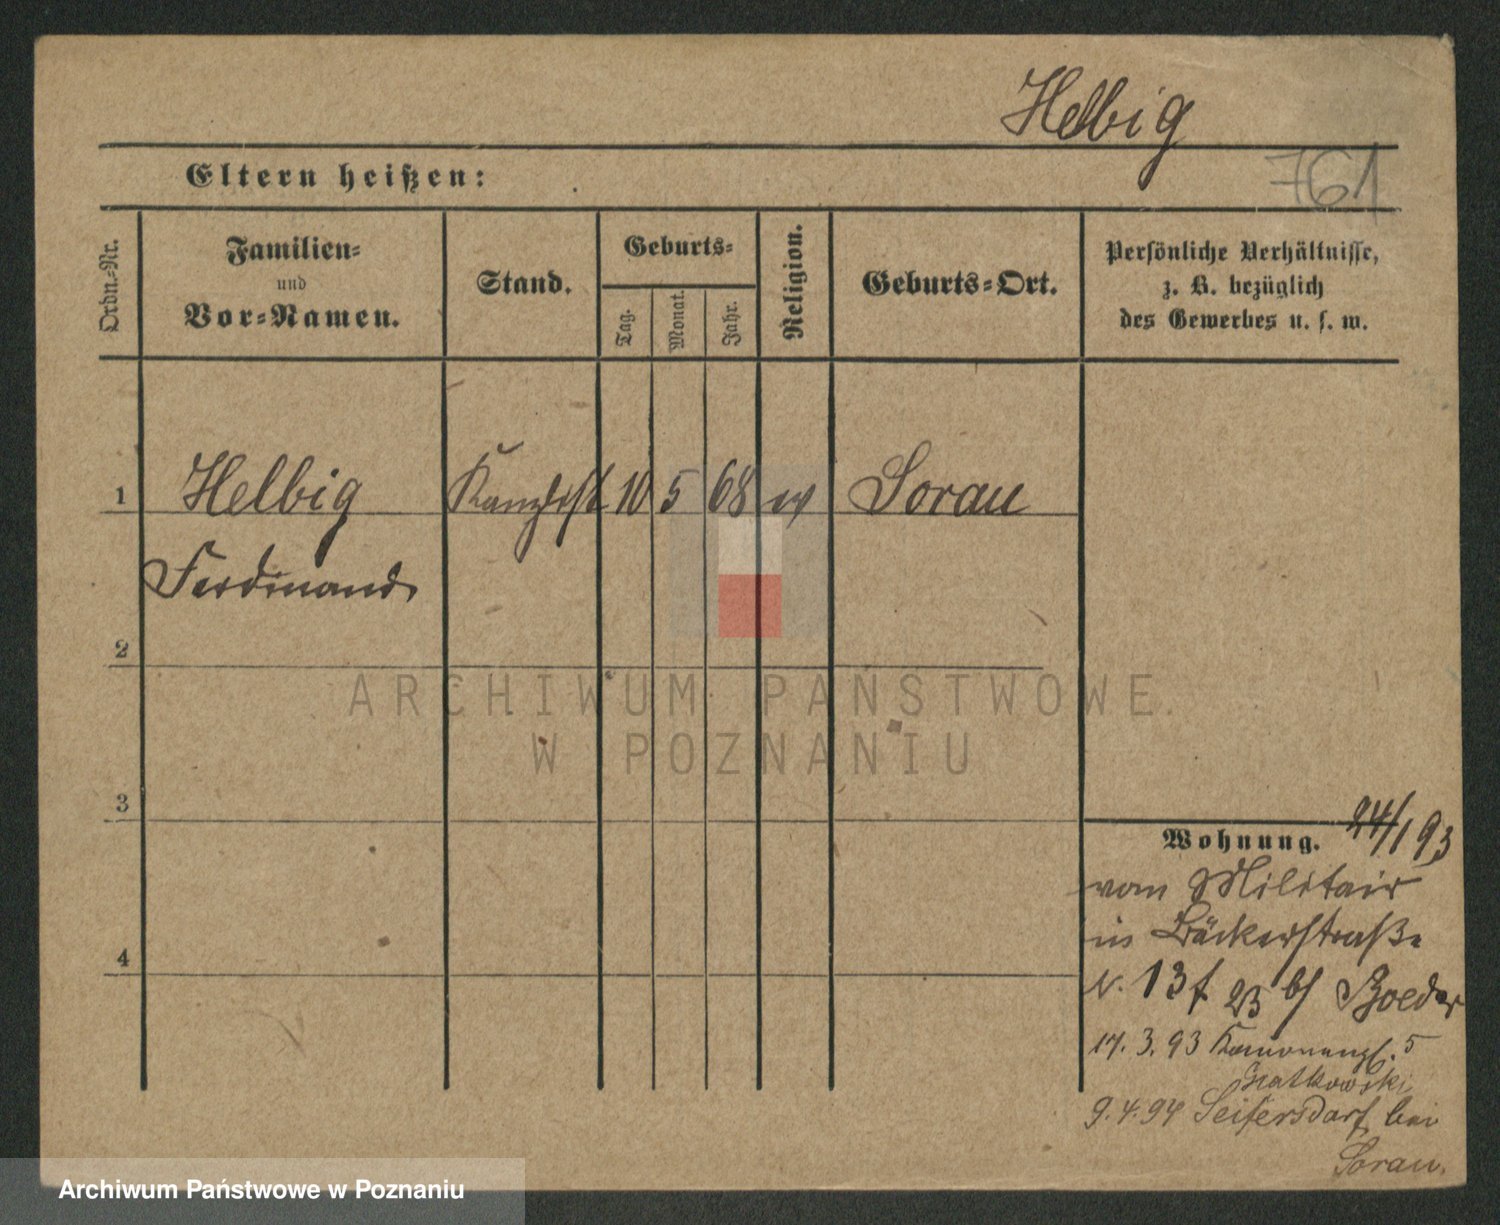 Helbig
761
Eltern heißen:
Ordn.-Nr.
Familien-
und
Vor-Namen.
Stand.
Geburts-
Tag.
Monat.
Jahr.
Religion.
Geburts-Ort.
Persönliche Verhältnisse,
z. B. bezüglich
des Gewerbes u. s. w.
1 Helbig Kanzlist 10 5 68 ev Sorau
Ferdinand
2
3
4
Wohnung. 24/1 93
vom Militair
in Bäckerstraße
N. 13 b/ Boeder
17. 3. 93 5
9. 4. 94 Seifersdorf bei
Sorau.
ARCHIWUM PAŃSTWOWE
W POZNANIU
Archiwum Państwowe w Poznaniu